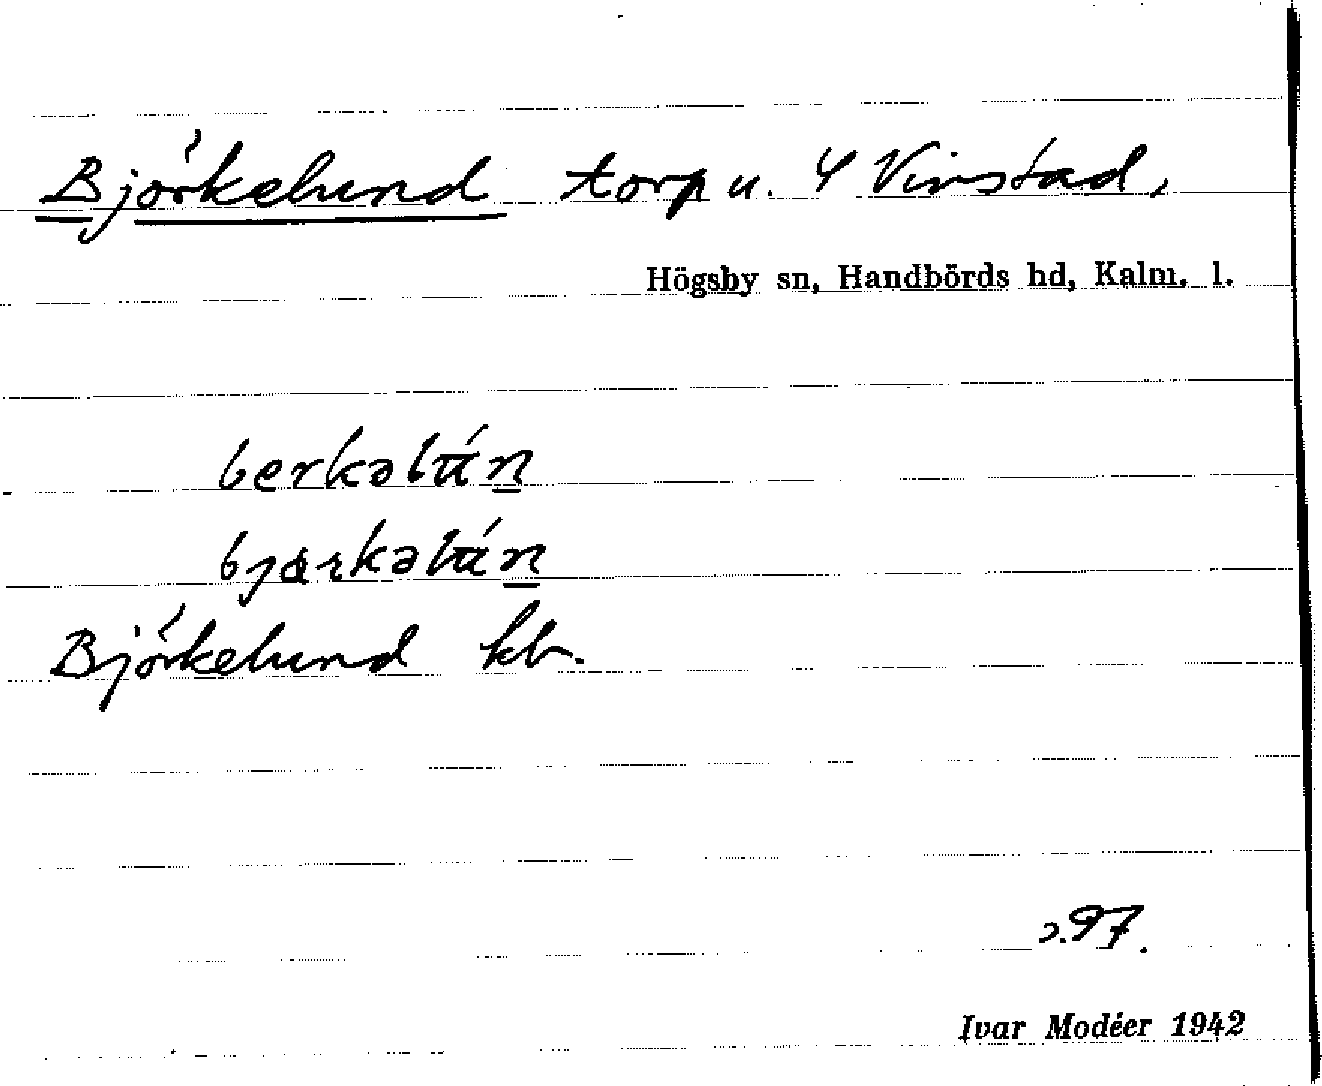 Björkelund torp u. 4 Vinstad,
Högsby sn, Handbörds hd, Kalm. l.
berkəlún
bjarkəlún
Björkelund kb.
s. 97.
Ivar Modéer 1942